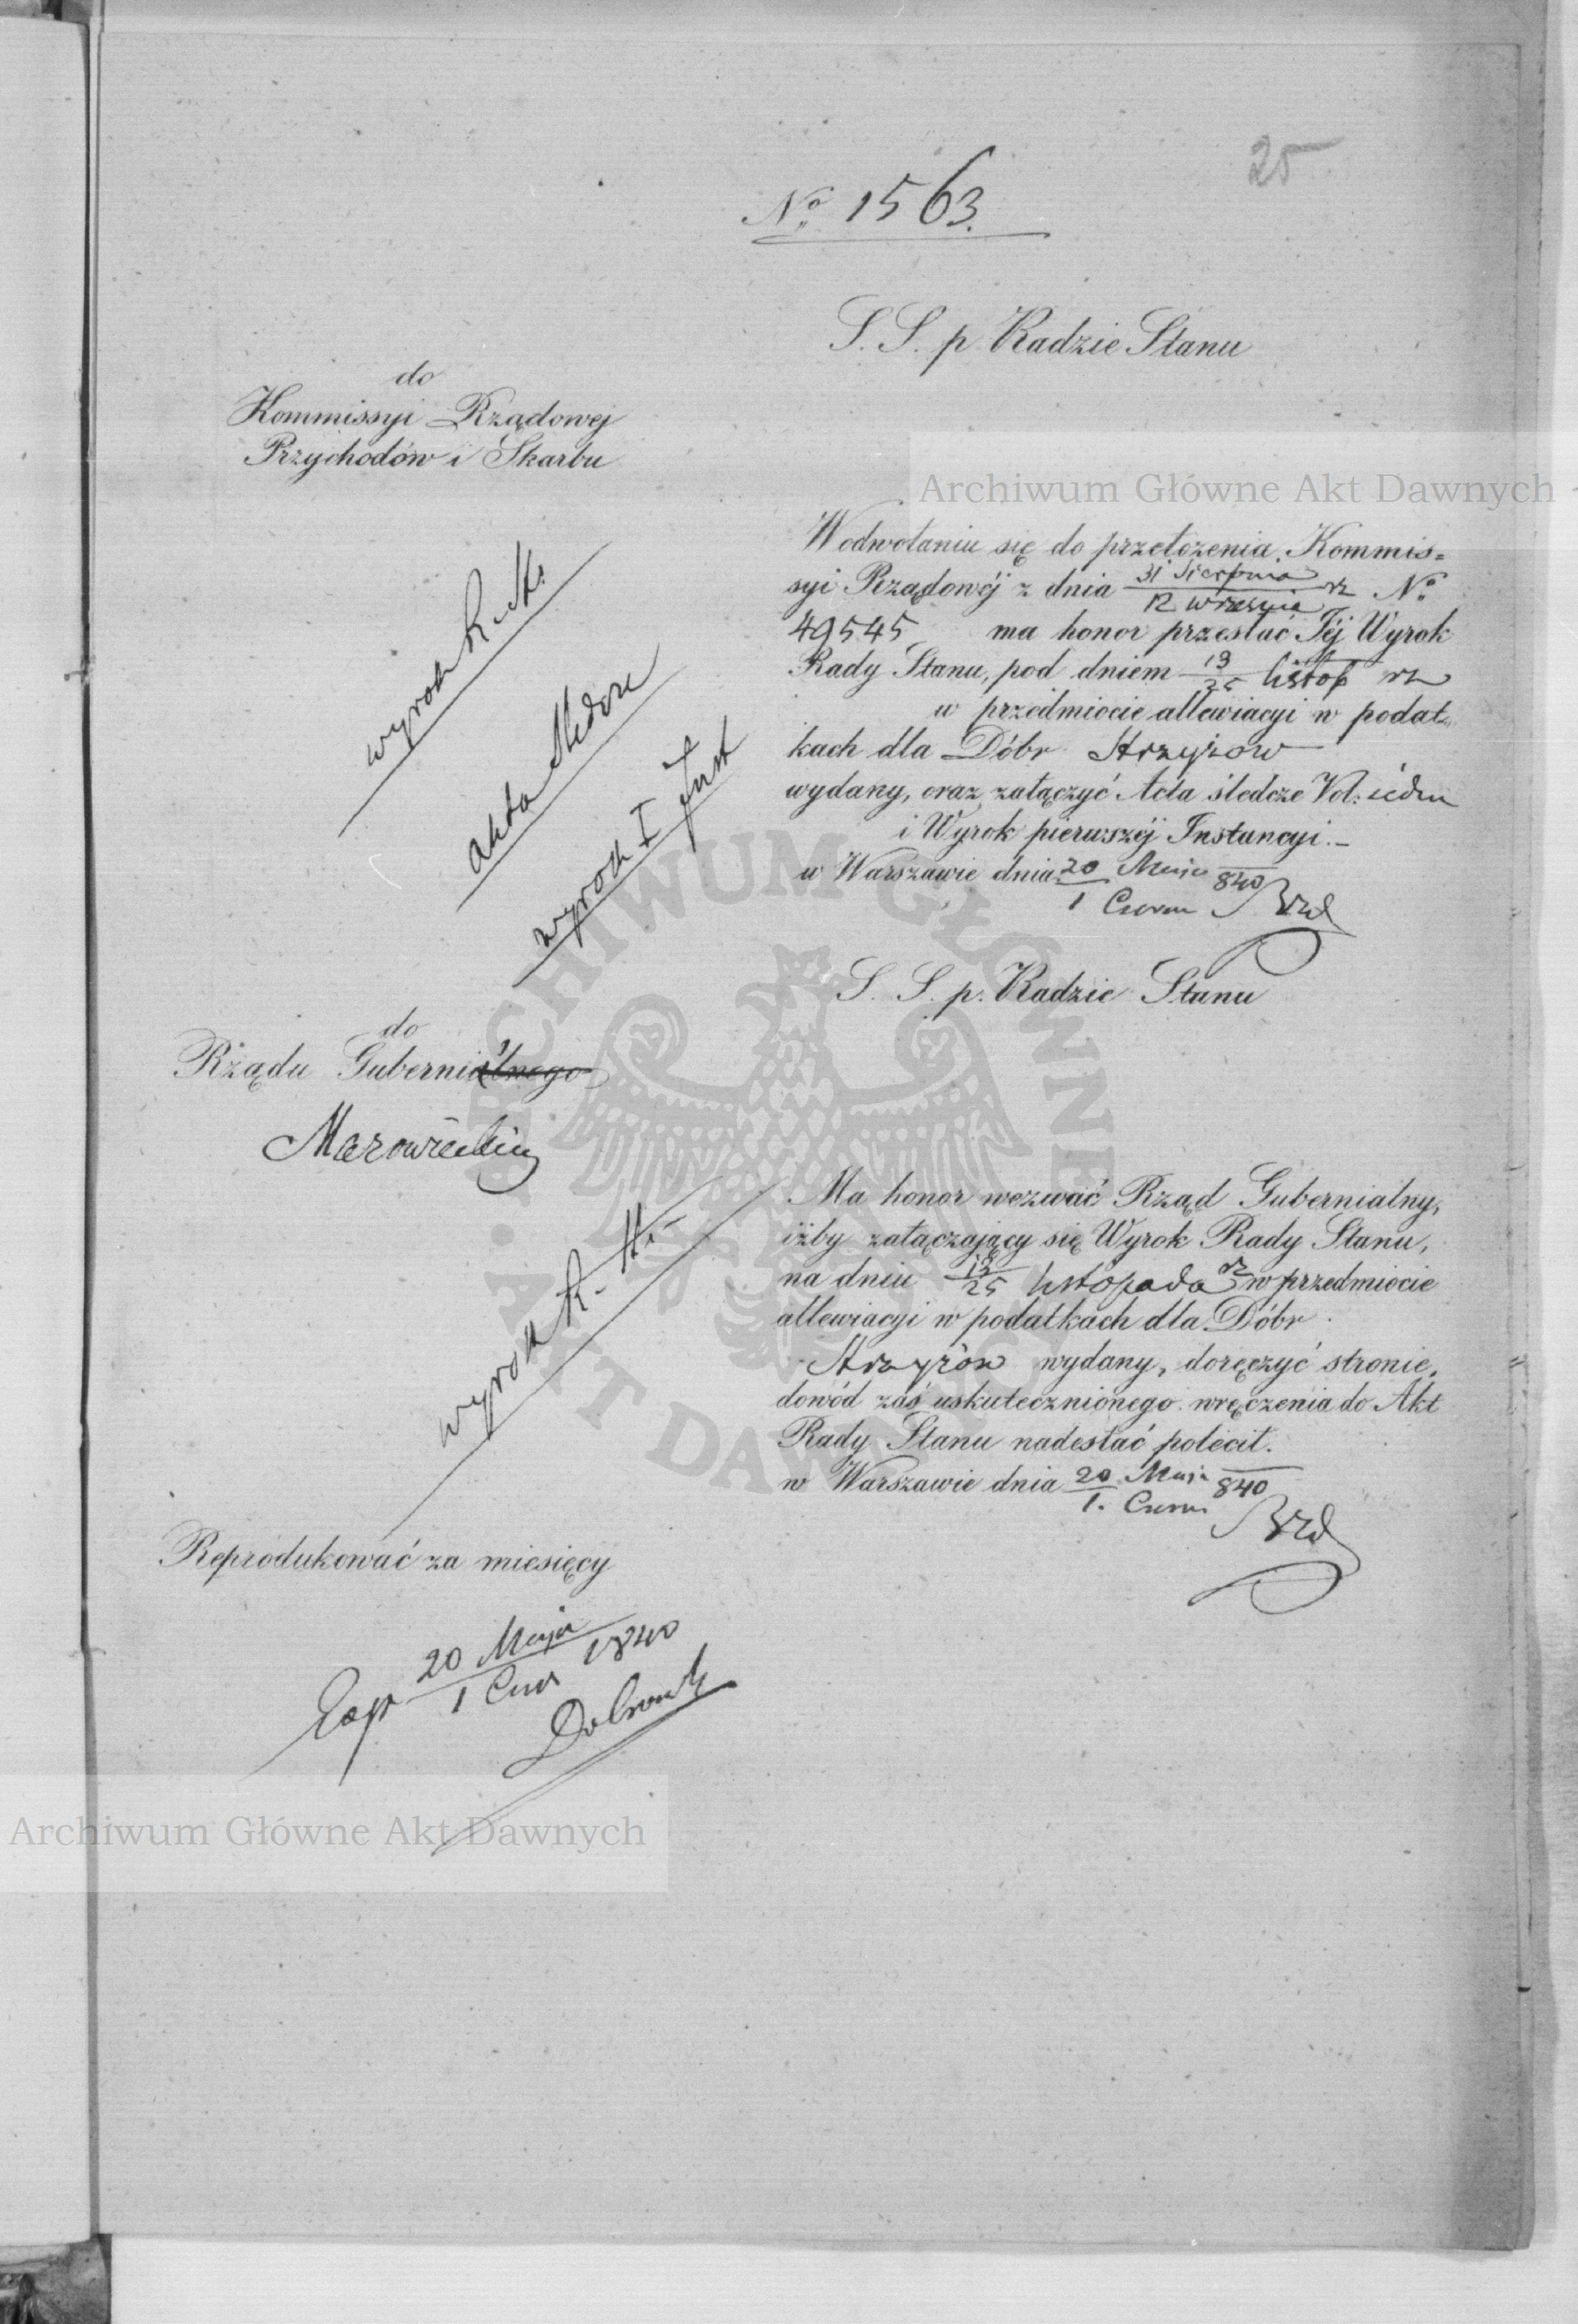 25
No 1563.
S. S. p. Radzie Stanu
do
Kommissyi Rządowej
Przychodów i Skarbu
Archiwum Główne Akt Dawnych
W odwołaniu się do przełożenia Kommis=
syi Rządowéj z dnia 31 Sierpnia / 12 września rz No
49545 ma honor przesłać Jéj Wyrok
Rady Stanu, pod dniem 13/25 listop rz
w przedmiocie allewiacyi w podat=
kach dla Dóbr Strzyżow
wydany, oraz załączyć Acta śledcze Vol: ieden
i Wyrok pierwszéj Instancyi.—
w Warszawie dnia 20 Maja / 1 Czerw 840
wyrok R. St.
akta śledcze
wyrok I Inst
S. S. p. Radzie Stanu
do
Rządu Gubernialnego
Mazowieckiego
Ma honor wezwać Rząd Gubernialny,
iżby załączający się Wyrok Rady Stanu,
na dniu 13/25 listopada rz w przedmiocie
allewiacyi w podatkach dla Dóbr
Strzyżów wydany, doręczyć stronie,
dowód zaś uskutecznionego wręczenia do Akt
Rady Stanu nadesłać polecił.
w Warszawie dnia 20 Maja / 1. Czerw 840
wyrok R. St.
Reprodukować za miesięcy
Exp 20 Maja / 1 Czer 1840
Archiwum Główne Akt Dawnych
ARCHIWUM GŁÓWNE AKT DAWNYCH